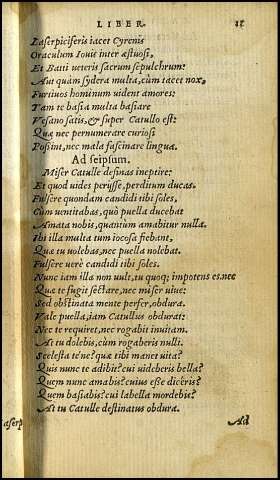 LIBER.
Laserpiciferis iacet Cyrenis
Oraculum Iouis inter æstuosi,
Et Batti veteris sacrum sepulchrum:
Aut quàm sydera multa, cùm tacet nox,
Furtiuos hominum uident amores:
Tam te basia multa basiare
Vesano satis, & super Catullo est:
Quæ nec pernumerare curiosi
Possint, nec mala fascinare lingua.
Ad seipsum.
Miser Catulle desinas ineptire:
Et quod uides perijsse, perditum ducas.
Fulsere quondam candidi tibi soles,
Cùm uentitabas, quò puella ducebat
Amata nobis, quantum amabitur nulla.
Ibi illa multa tum iocosa fiebant,
Quæ tu uolebas, nec puella nolebat.
Fulsere uerè candidi tibi soles.
Nunc iam illa non uult, tu quoq; impotens es. nec
Quæ te fugit sectare, nec miser uiue:
Sed obstinata mente perfer, obdura.
Vale puella, iam Catullus obdurat:
Nec te requiret, nec rogabit inuitam.
At tu dolebis, cùm rogaberis nulli.
Scelesta te'ne? quæ tibi manet uita?
Quis nunc te adibit? cui uideberis bella?
Quem nunc amabis? cuius esse diceris?
Quem basiabis? cui labella mordebis?
At tu Catulle destinatus obdura.
Ad
aserp